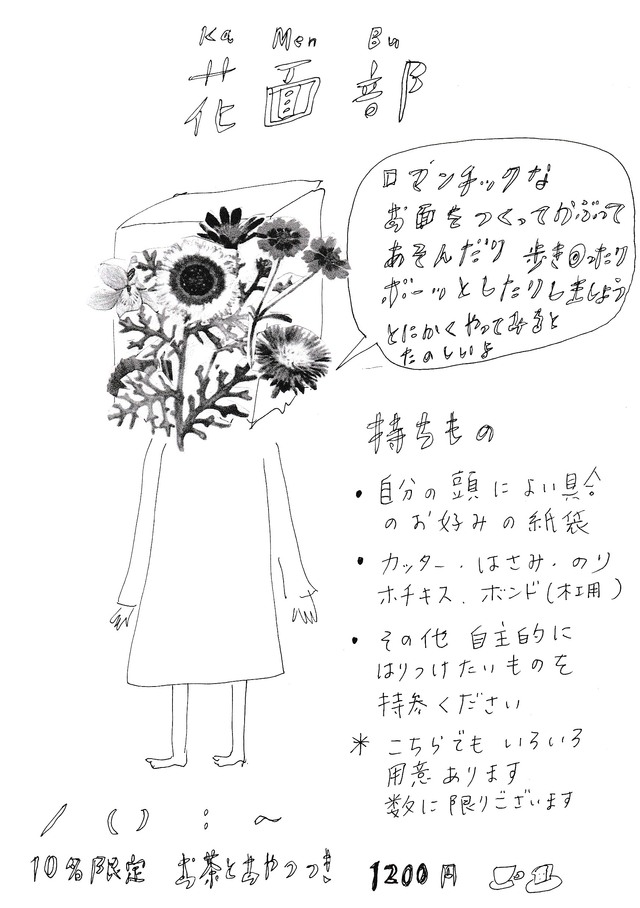 Ka Men Bu
花面部
ロマンチックな
お面をつくってかぶって
あそんだり 歩き回ったり
ボーッとしたりしましょう
とにかくやってみると
たのしいよ
持ちもの
• 自分の頭によい具合
のお好みの紙袋
• カッター・はさみ・のり
ホチキス、ボンド(木工用)
• その他 自主的に
はりつけたいものを
持参ください
* こちらでも いろいろ
用意あります
数に限りございます
/ ( ) : 〜
10名限定 お茶とおやつつき 1200円